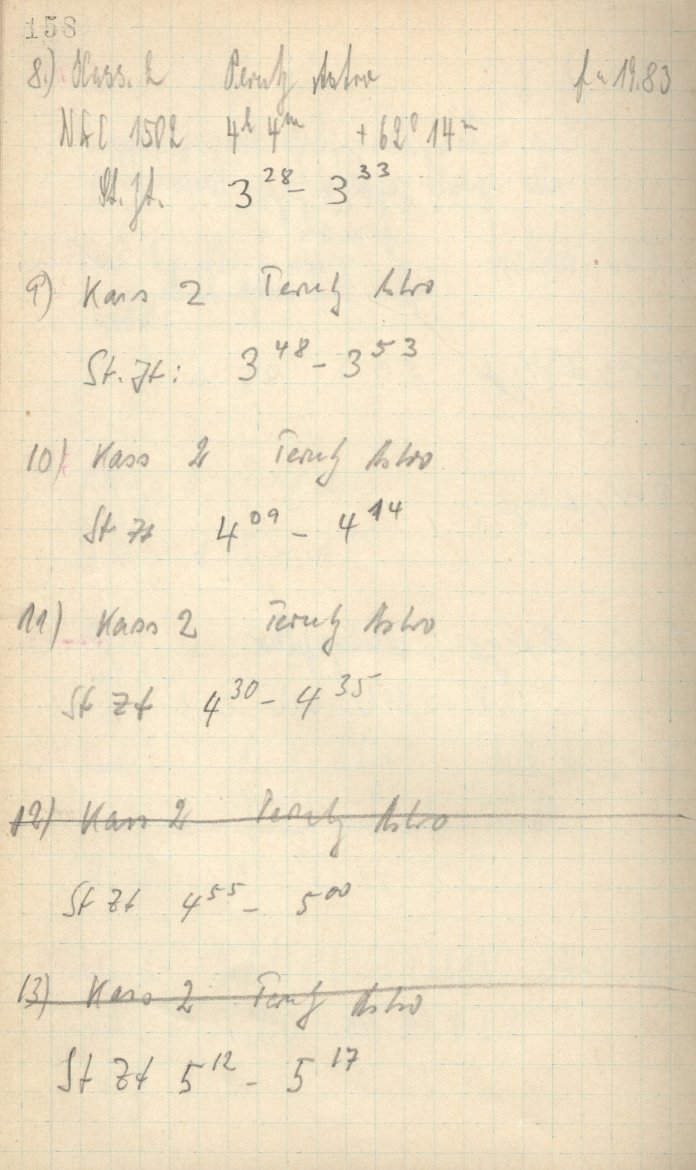 158
8.) Kass. 2 Perutz Astro f = 19.83
NGC 1502 4h 4m + 62° 14m
St. Zt. 3 28 - 3 33
9) Kass 2 Perutz Astro
St. Zt: 3 48 - 3 53
10) Kass 2 Perutz Astro
St Zt 4 09 - 4 14
11) Kass 2 Perutz Astro
St Zt 4 30 - 4 35
12) Kass 2 Perutz Astro
St Zt 4 55 - 5 00
13) Kass 2 Perutz Astro
St Zt 5 12 - 5 17